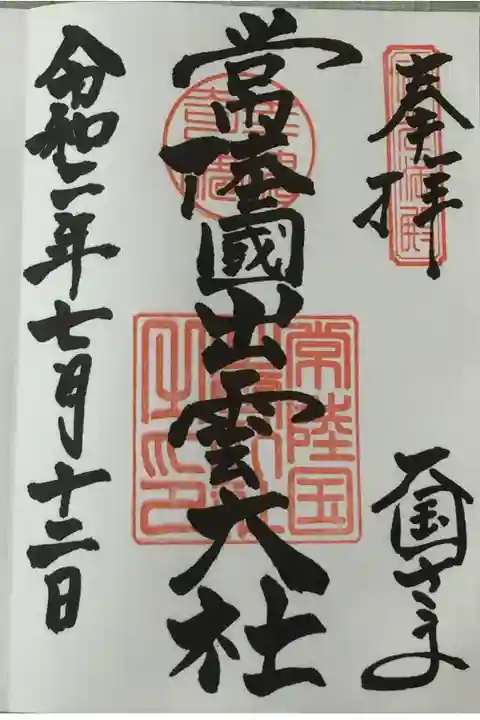 奉拝
大国さま
常陸國出雲大社
常陸国
出雲大社
之印
令和二年七月十二日